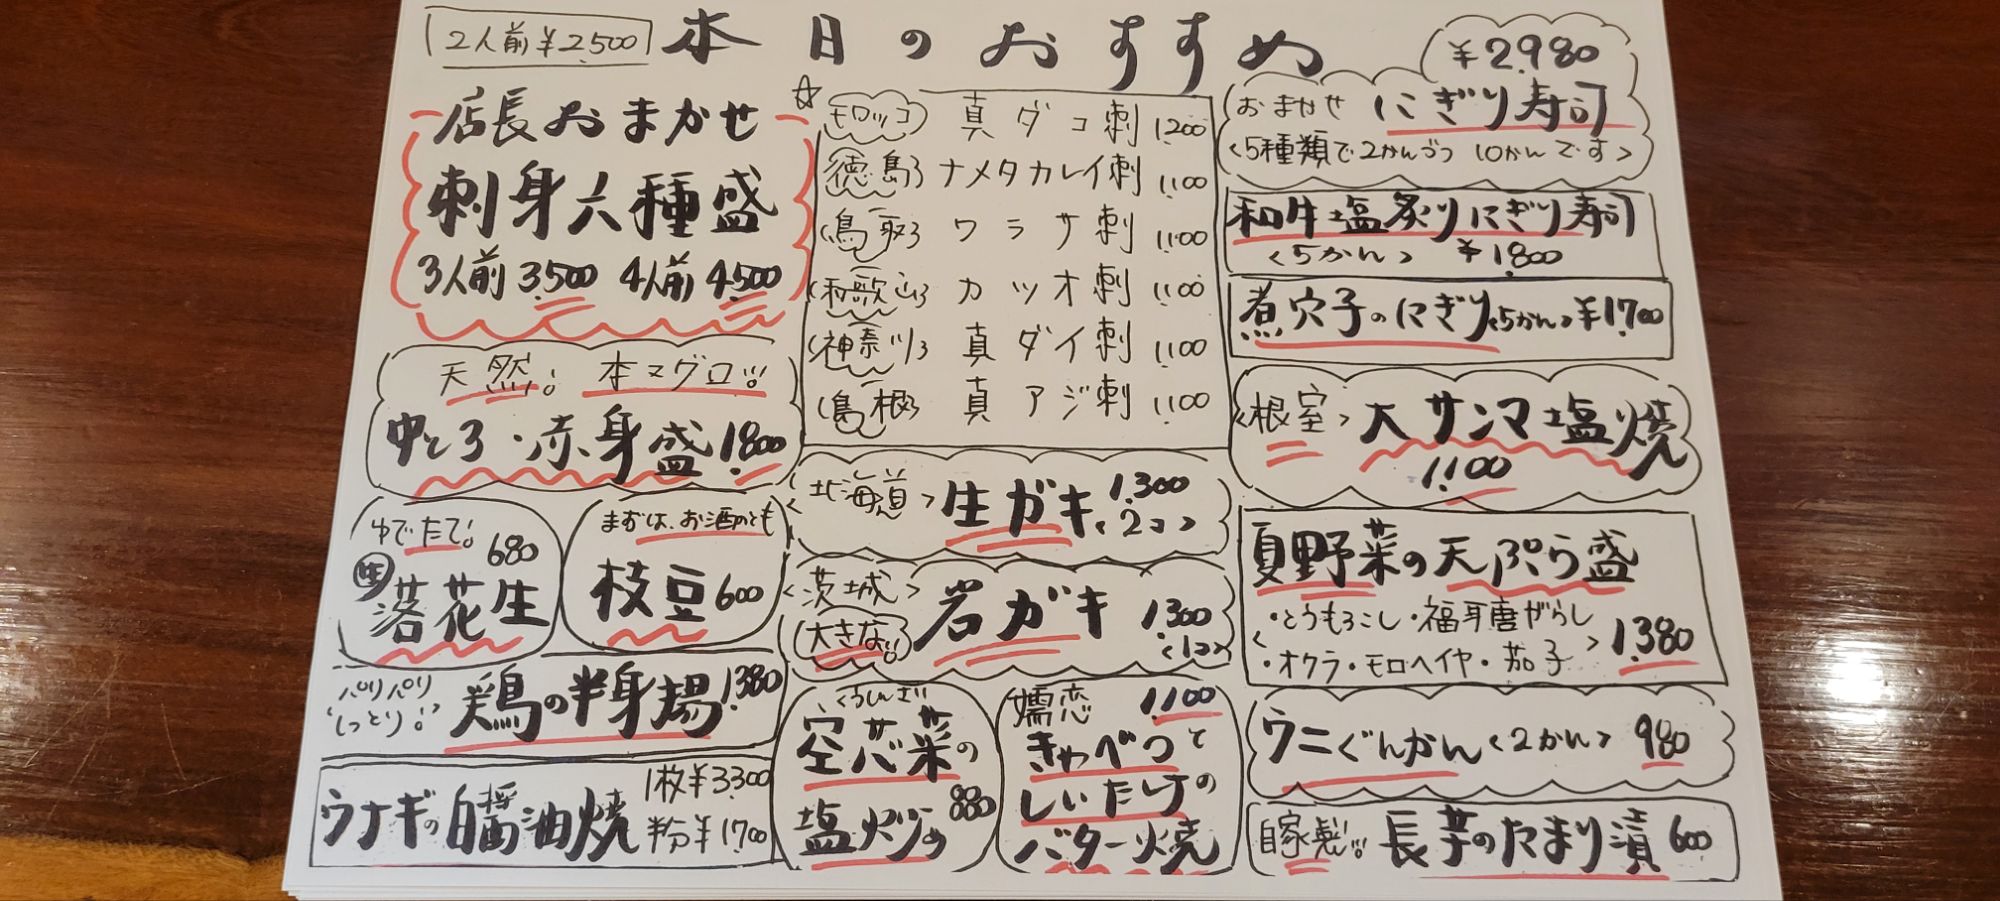 本日のおすすめ
2人前¥2,500
店長おまかせ
刺身六種盛
3人前3,500 4人前4,500
天然! 本マグロ!!!
中とろ・赤身盛1,800
ゆでたて!
680
生
落花生
まずは、お酒のとも
枝豆600
パリパリ
しっとり!
鶏の半身揚1,380
ウナギの白醤油焼
1枚¥3,300
半分¥1,700
☆
モロッコ 真ダコ刺 1,200
徳島 ナメタカレイ刺 1,100
鳥取 ワラサ刺 1,100
和歌山 カツオ刺 1,100
神奈川 真ダイ刺 1,100
島根 真アジ刺 1,100
<北海道> 生ガキ 1,300
<2コ>
<茨城>
大きな!!
岩ガキ 1,300
<1コ>
くうしんさい
空芯菜の
塩炒め
880
嬬恋 1,100
きゃべつと
しいたけの
バター焼
¥2,980
おまかせ にぎり寿司
<5種類で2かんづつ 10かんです>
和牛塩炙りにぎり寿司
<5かん> ¥1,800
煮穴子のにぎり<5かん>¥1,700
<根室> 大サンマ塩焼
1,100
夏野菜の天ぷら盛
・とうもろこし・福耳唐がらし
・オクラ・モロヘイヤ・茄子
1,380
ウニぐんかん<2かん> 980
自家製!! 長芋のたまり漬 600